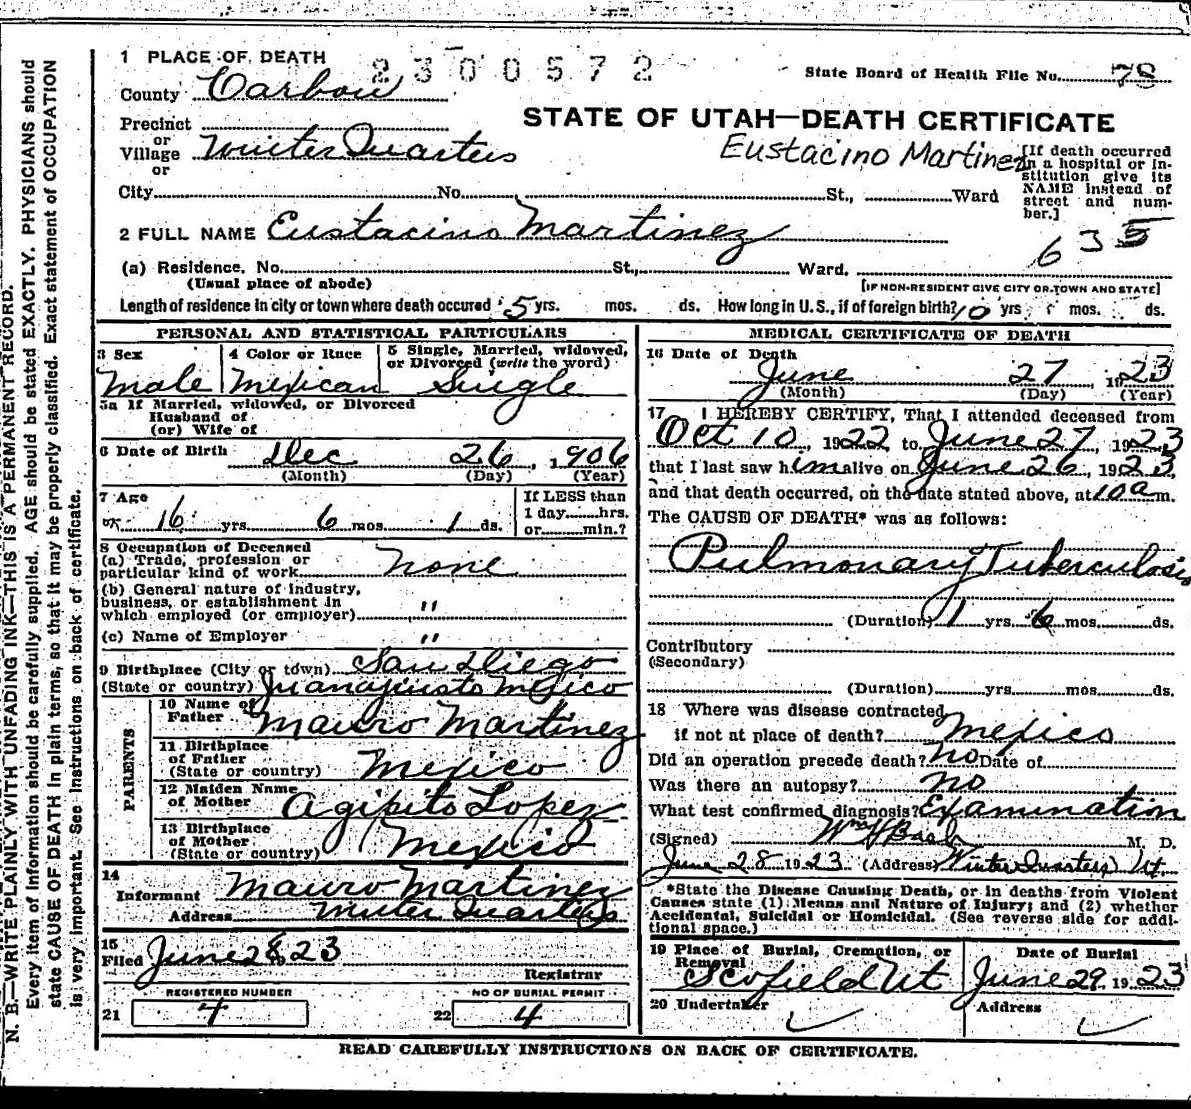 1 PLACE OF DEATH
2300572
State Board of Health File No. 78
County Carbon
STATE OF UTAH—DEATH CERTIFICATE
Precinct
or
Village Winter Quarters
or
Eustacino Martinez
[If death occurred in a hospital or institution give its NAME instead of street and number.]
City No. St., Ward
2 FULL NAME Eustacino Martinez
635
(a) Residence. No. St., Ward.
(Usual place of abode)
[IF NON-RESIDENT GIVE CITY OR TOWN AND STATE]
Length of residence in city or town where death occured 5 yrs. mos. ds. How long in U.S., if of foreign birth? 10 yrs mos. ds.
PERSONAL AND STATISTICAL PARTICULARS
3 Sex Male
4 Color or Race Mexican
5 Single, Married, widowed, or Divorced (write the word) Single
5a If Married, widowed, or Divorced
Husband of
(or) Wife of
6 Date of Birth Dec 26, 1906
(Month) (Day) (Year)
7 Age 16 yrs 6 mos 1 ds.
If LESS than
1 day......hrs.
or......min.?
8 Occupation of Deceased
(a) Trade, profession or
particular kind of work None
(b) General nature of industry,
business, or establishment in
which employed (or employer) "
(c) Name of Employer "
9 Birthplace (City or town) San Diego
(State or country) Juanajuato Mexico
PARENTS
10 Name of Father Mauro Martinez
11 Birthplace of Father (State or country) Mexico
12 Maiden Name of Mother Agipito Lopez
13 Birthplace of Mother (State or country) Mexico
14
Informant Mauro Martinez
Address Winter Quarters
15
Filed June 28 23
Registrar
REGISTERED NUMBER
21 4
NO OF BURIAL PERMIT
22 4
MEDICAL CERTIFICATE OF DEATH
16 Date of Death
June 27, 1923
(Month) (Day) (Year)
17 I HEREBY CERTIFY, That I attended deceased from
Oct 10, 1922 to June 27, 1923
that I last saw him alive on June 26, 1923,
and that death occurred, on the date stated above, at 10 a m.
The CAUSE OF DEATH* was as follows:
Pulmonary Tuberculosis
(Duration) 1 yrs 6 mos. ds.
Contributory
(Secondary)
(Duration) yrs. mos. ds.
18 Where was disease contracted
if not at place of death? Mexico
Did an operation precede death? no Date of
Was there an autopsy? no
What test confirmed diagnosis? Examination
(Signed) M. D.
June 28 1923 (Address) Winter Quarters Ut.
*State the Disease Causing Death, or in deaths from Violent
Causes state (1) Means and Nature of Injury; and (2) whether
Accidental, Suicidal or Homicidal. (See reverse side for additional space.)
19 Place of Burial, Cremation, or Removal
Scofield Ut
Date of Burial
June 29 1923
20 Undertaker
Address
READ CAREFULLY INSTRUCTIONS ON BACK OF CERTIFICATE.
N. B.—WRITE PLAINLY WITH UNFADING INK—THIS IS A PERMANENT RECORD.
Every item of information should be carefully supplied. AGE should be stated EXACTLY. PHYSICIANS should
state CAUSE OF DEATH in plain terms, so that it may be properly classified. Exact statement of OCCUPATION
is very important. See instructions on back of certificate.